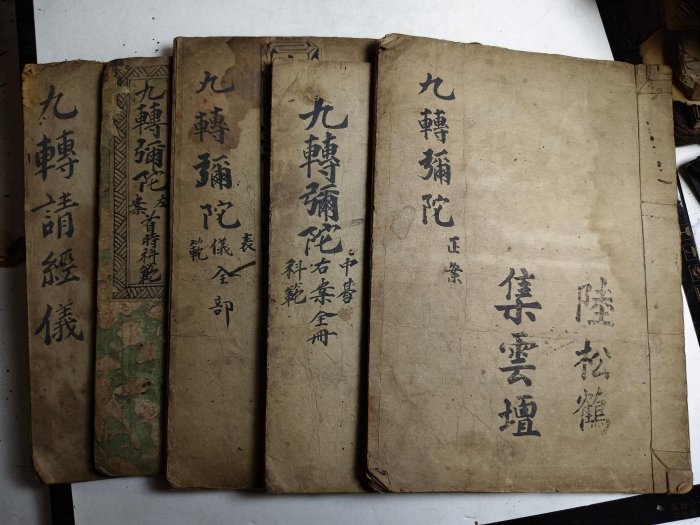 九轉請經儀
九轉彌陀
左案
首時科範
九轉彌陀
表儀範全部
九轉彌陀
右案全冊
科範
九轉彌陀
正案
集雲壇
陸松鶴